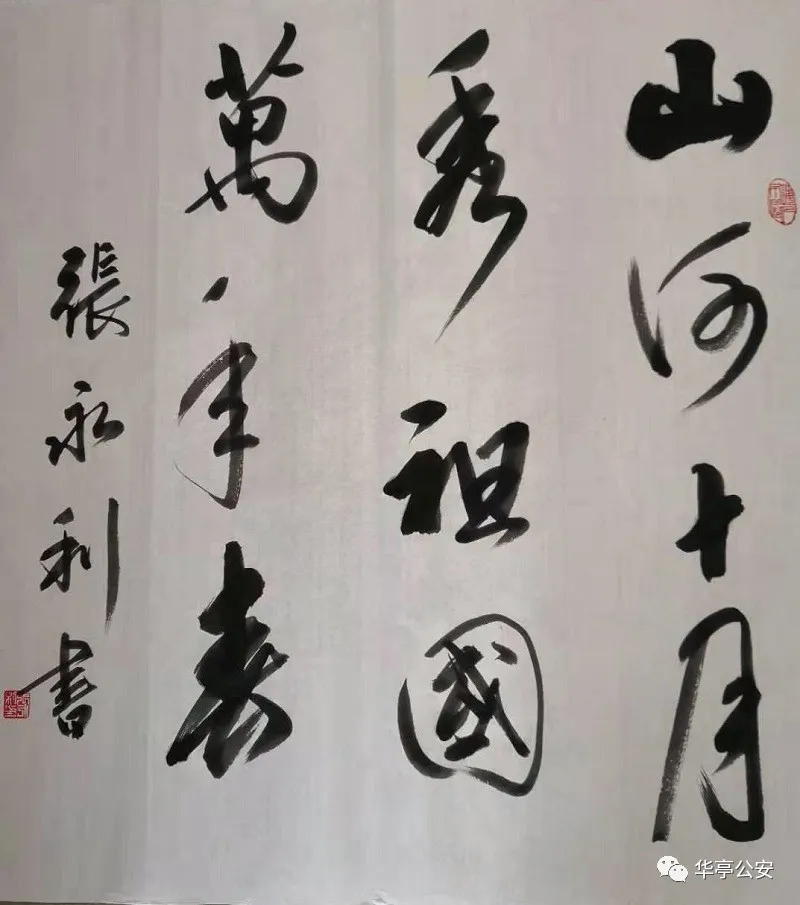 山河十月
秀祖國
萬年春
張永利書
华亭公安